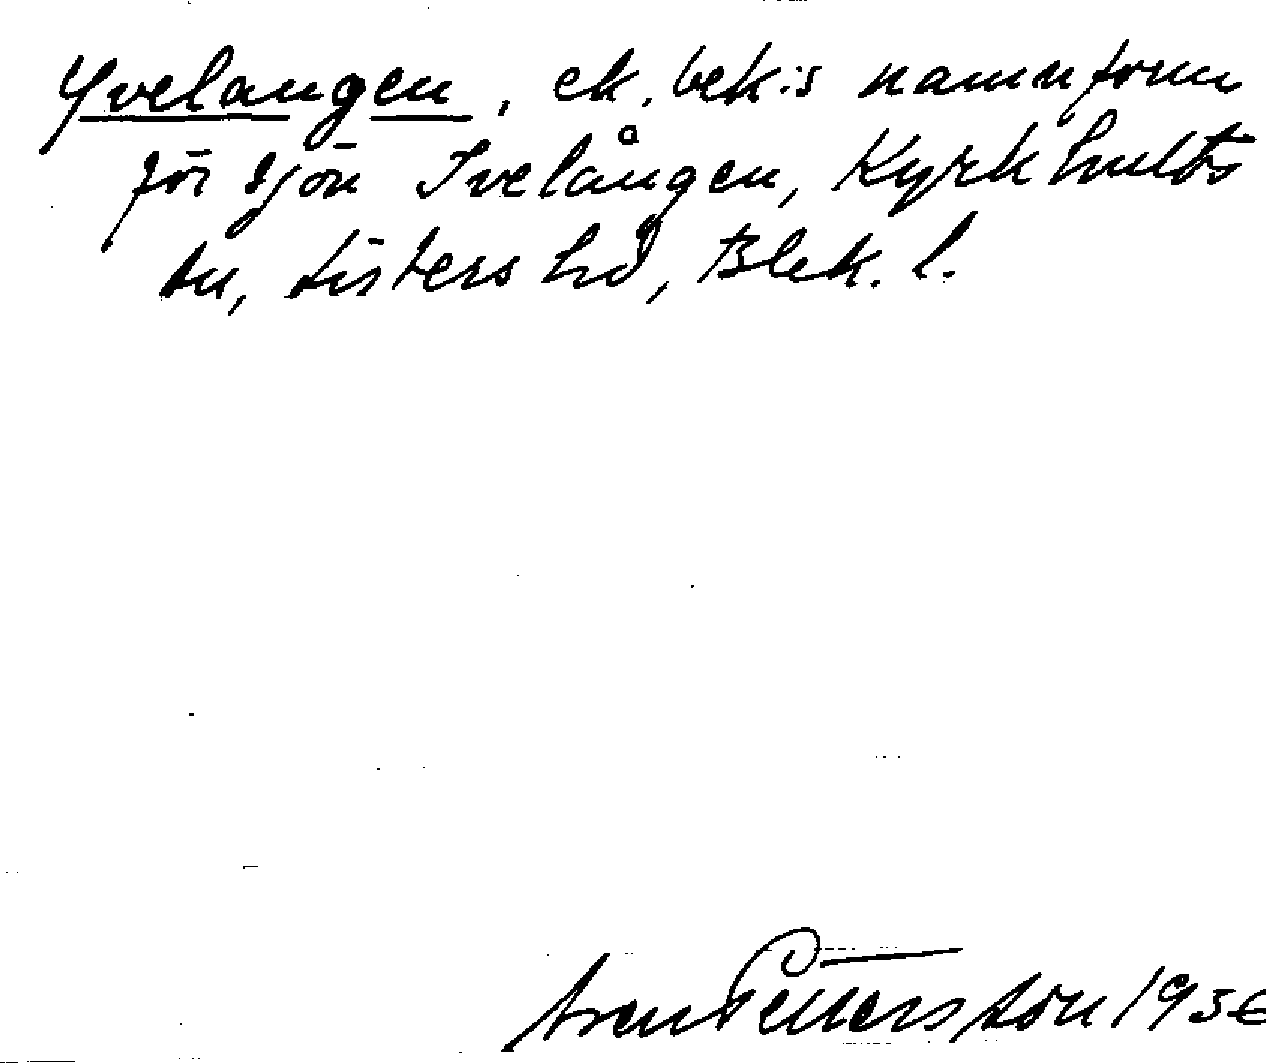 Yvelangen, ek. bek:s namnform
för sjön Ivelången, Kyrkhults
sn, Listers hd, Blek. l.
Sven Pettersson 1936